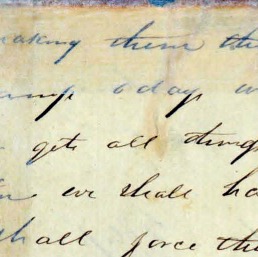 making them the
camp today w
gets all things
we shall ha
shall force the